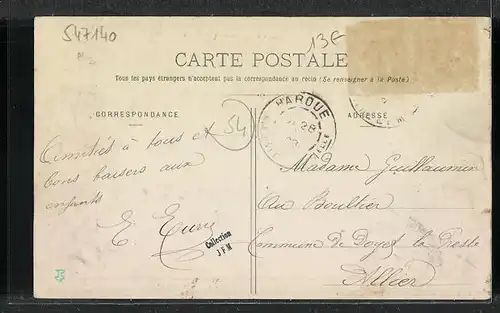 547140
13€
CARTE POSTALE
Tous les pays étrangers n'acceptent pas la correspondance au recto (Se renseigner à la Poste)
CORRESPONDANCE
ADRESSE
HAROUE
28
54
Amitiés à tous et
bons baisers aux
enfants
E.
Collection
J F M
Madame Guillaumin
Au Boultier
Commune de Doyet la Presle
Allier